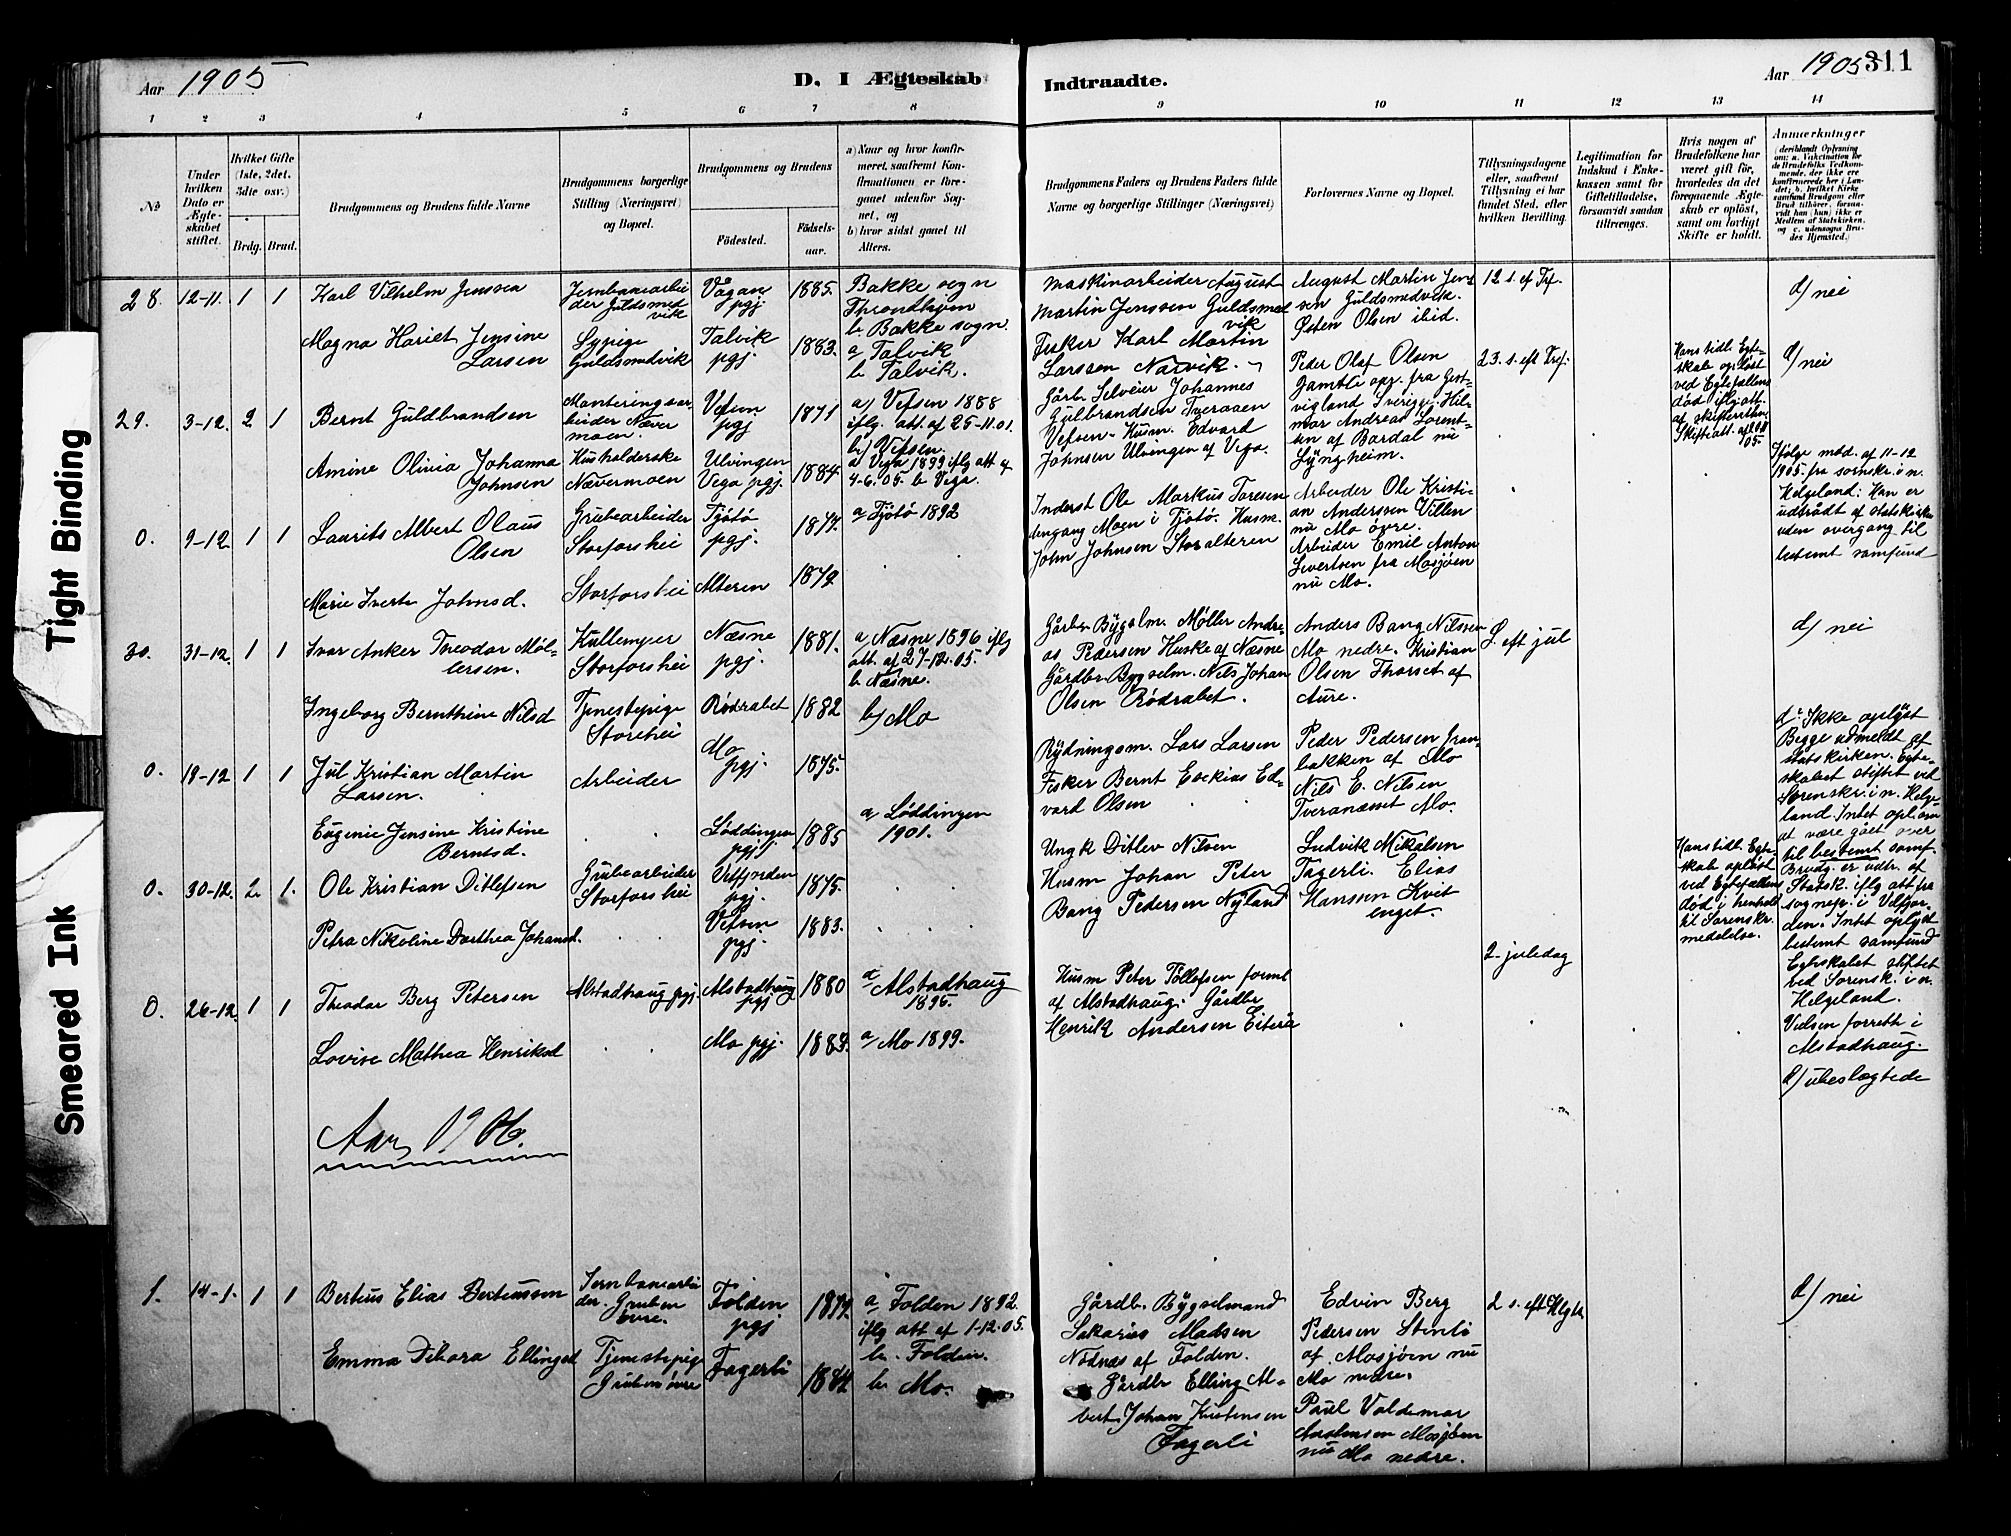 Aar 1905
D. I Ægteskab
Indtraadte.
Aar 1905
311
1 2 3 4 5 6 7 8 9 10 11 12 13 14
No
Under hvilken Dato er Ægteskabet stiftet.
Hvilket Gifte (1ste, 2det, 3die osv.)
Brdg. Brud.
Brudgommens og Brudens fulde Navne
Brudgommens borgerlige Stilling (Næringsvei) og Bopæl.
Brudgommens og Brudens
Fødested.
Fødselsaar.
a) Naar og hvor konfirmeret, saafremt Konfirmationen er foregaaet udenfor Sognet, og
b) hvor sidst gaaet til Alters.
Brudgommens Faders og Brudens Faders fulde Navne og borgerlige Stillinger (Næringsvei)
Forlovernes Navne og Bopæl.
Tillysningsdagene eller, saafremt Tillysning ei har fundet Sted, efter hvilken Bevilling.
Legitimation for Indskud i Enkekassen samt for Giftetilladelse, forsaavidt saadan tiltrænges.
Hvis nogen af Brudefolkene har været gift før, hvorledes da det foregaaende Ægteskab er opløst, samt om lovligt Skifte er holdt.
Anmærkninger
(deriblandt Oplysning om: a. Vakcination for de Brudefolks Vedkommende, der ikke ere konfirmerede her i Landet; b. hvilket Kirkesamfund Brudgom eller Brud tilhører, forsaavidt han (hun) ikke er Medlem af Statskirken, og c. udensogns Brudes Hjemsted.)
28. 12-11. 1 1
Karl Vilhelm Jenssen
Jernbanearbeider Guldsmedvik
Vågan pgj.
1885.
Bakke sogn Throndhjem
b Bakke sogn.
Maskinarbeider August Martin Jenssen Guldsmedvik
August Martin Jenssen Guldsmedvik.
Østen Olsen ibid.
12 s. ef Tref.
d/ nei
Magna Hariet Jensine Larsen
Sypige Guldsmedvik
Talvik pgj.
1883.
a Talvik
b Talvik.
Fisker Karl Martin Larssen Narvik.
29. 3-12. 2 1
Bernt Guldbrandsen
Monteringsarbeider Nævermoen.
Vefsen pgj
1871
a/ Vefsen 1888 iflg. att. af 25-11.01.
b/ Vefsen.
Gårbr Selveier Johannes Gulbrandsen Tveraaen Vefsen. Husm. Edvard Johnsen Ulvingen af Vega.
Peder Olaf Olsen Gamtli opr. fra Gestvigland Sverige. Hilmar Andreas Lorentsen af Bardal nu Lyngheim.
23. s. eft Tref.
Hans tidl. Egteskab opløst ved Egtefællens død iflg. att. af skifteretten Skifteatt. af
d/ nei
Amine Olivia Johanna Johnsen
Husholderske Nævermoen
Ulvingen Vega pgj.
1884
a Vega 1899 iflg att af 4-6.05. b Vega.
0. 9-12 1 1
Laurits Albert Olaus Olsen
Grubearbeider Storforshei
Tjøtø pgj.
1877.
a/ Tjøtø 1892
Inderst Ole Markus Toresen Moen i Tjøtø. Husm. John Johnsen Storalteren
Arbeider Ole Kristian Anderssen Villen nu Mo øvre.
Arbeider Emil Anton Sivertsen fra Mosjøen nu Mo.
Ifølge med. af 11-12 1905. fra sorenskr. i n. Helgeland: Han er udtrådt af statskirken uden overgang til bestemt samfund
Marie Iverta Johnsd.
Storforshei
Alteren
1872
30. 31-12. 1 1
Ivar Anker Theodor Møllersen.
Kullemper Storforshei
Næsne pgj.
1881.
a/ Næsne 1896 iflg att. af 27-12.05.
b Næsne.
Gårbr Bygselm. Møller Andreas Pedersen Huske af Næsne
Gårdbr. Bygselm. Nils Johan Olsen Rødrabet.
Anders Bang Nilssen Mo nedre. Kristian Olsen Thorset af Aure.
S. eft jul
d/ nei
Ingeborg Bernthine Nilsd
Tjenestepige Storshei
Rødrabet
1882
b/ Mo
0. 19-12 1 1
Jul Kristian Martin Larsen.
Arbeider
Mo pgj.
1875.
Rydningsm. Lars Larsen
Fisker Bernt Esekias Edvard Olsen
Peder Pedersen Granbakken af Mo
Nils E. Nilsen Tveranæset Mo.
d: Ikke oplyst
Begge udmeldt af statskirken. Egteskabet stiftet ved Sorenskr. i n. Helgeland. Intet opl. om at være gået over til bestemt samf.
Eugenie Jensine Kristine Berntsd.
Løddingen pgj.
1885
a/ Løddingen 1901.
0. 30-12. 2. 1.
Ole Kristian Ditlefsen
Grubearbeider Storforshei
Velfjorden pgj.
1875.
Ungk Ditlev Nilsen
Husm Johan Peter Bang Pedersen Nyland
Ludvik Mikalsen Fagerli. Elias Hanssen Kvitenget.
Hans tidl. Egteskab opløst ved Egtefællens død i henhold til Sorenskr. meddelelse.
Brudg. er udtr. af Statsk. iflg att fra sognep. i Velfjorden. Intet oplyst bestemt samfund
Egteskabet stiftet ved Sorensk. i n. Helgeland.
Petra Nikoline Dorthea Johansd.
Vefsen pgj.
1883.
0. 26-12. 1 1
Theodor Berg Petersen
Alstadhaug pgj.
Alstadhaug pgj
1880
a Alstadhaug 1895.
Husm Peter Tollefsen forml af Alstadhaug. Gårdbr Henrik Andersen Eiterå
2. juledag
Vielsen forrett i Alstadhaug.
d/ ubeslægtede
Lovise Mathea Henriksd
Mo pgj.
1883.
a/ Mo 1899.
Aar 1906.
1. 14-1. 1 1
Berteus Elias Berteussen
Jernbanearbeider. Gruben øvre.
Folden pgj
1877.
a Folden 1892. iflg att af 1-12.05.
b. Folden.
Gårdb. Bygselmand Sakarias Madsen Nordnæs af Folden.
Edvin Berg Pedersen Stenli af Mosjøen nu Mo nedre.
2 s. eft Hlgtr
d/ nei
Emma Dikora Ellingsd
Tjenestepige Gruben øvre
Fagerli
1884
b. Mo.
Gårdbr Elling Albert Johan Kristensen Fagerli
Paul Valdemar Mosjøen nu Mo nedre.
Tight Binding
Smeared Ink